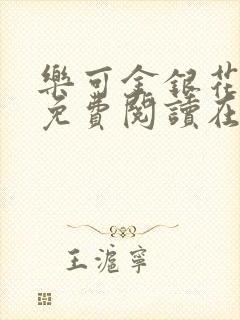 樂可金銀花
免費閱讀在
王滬寧